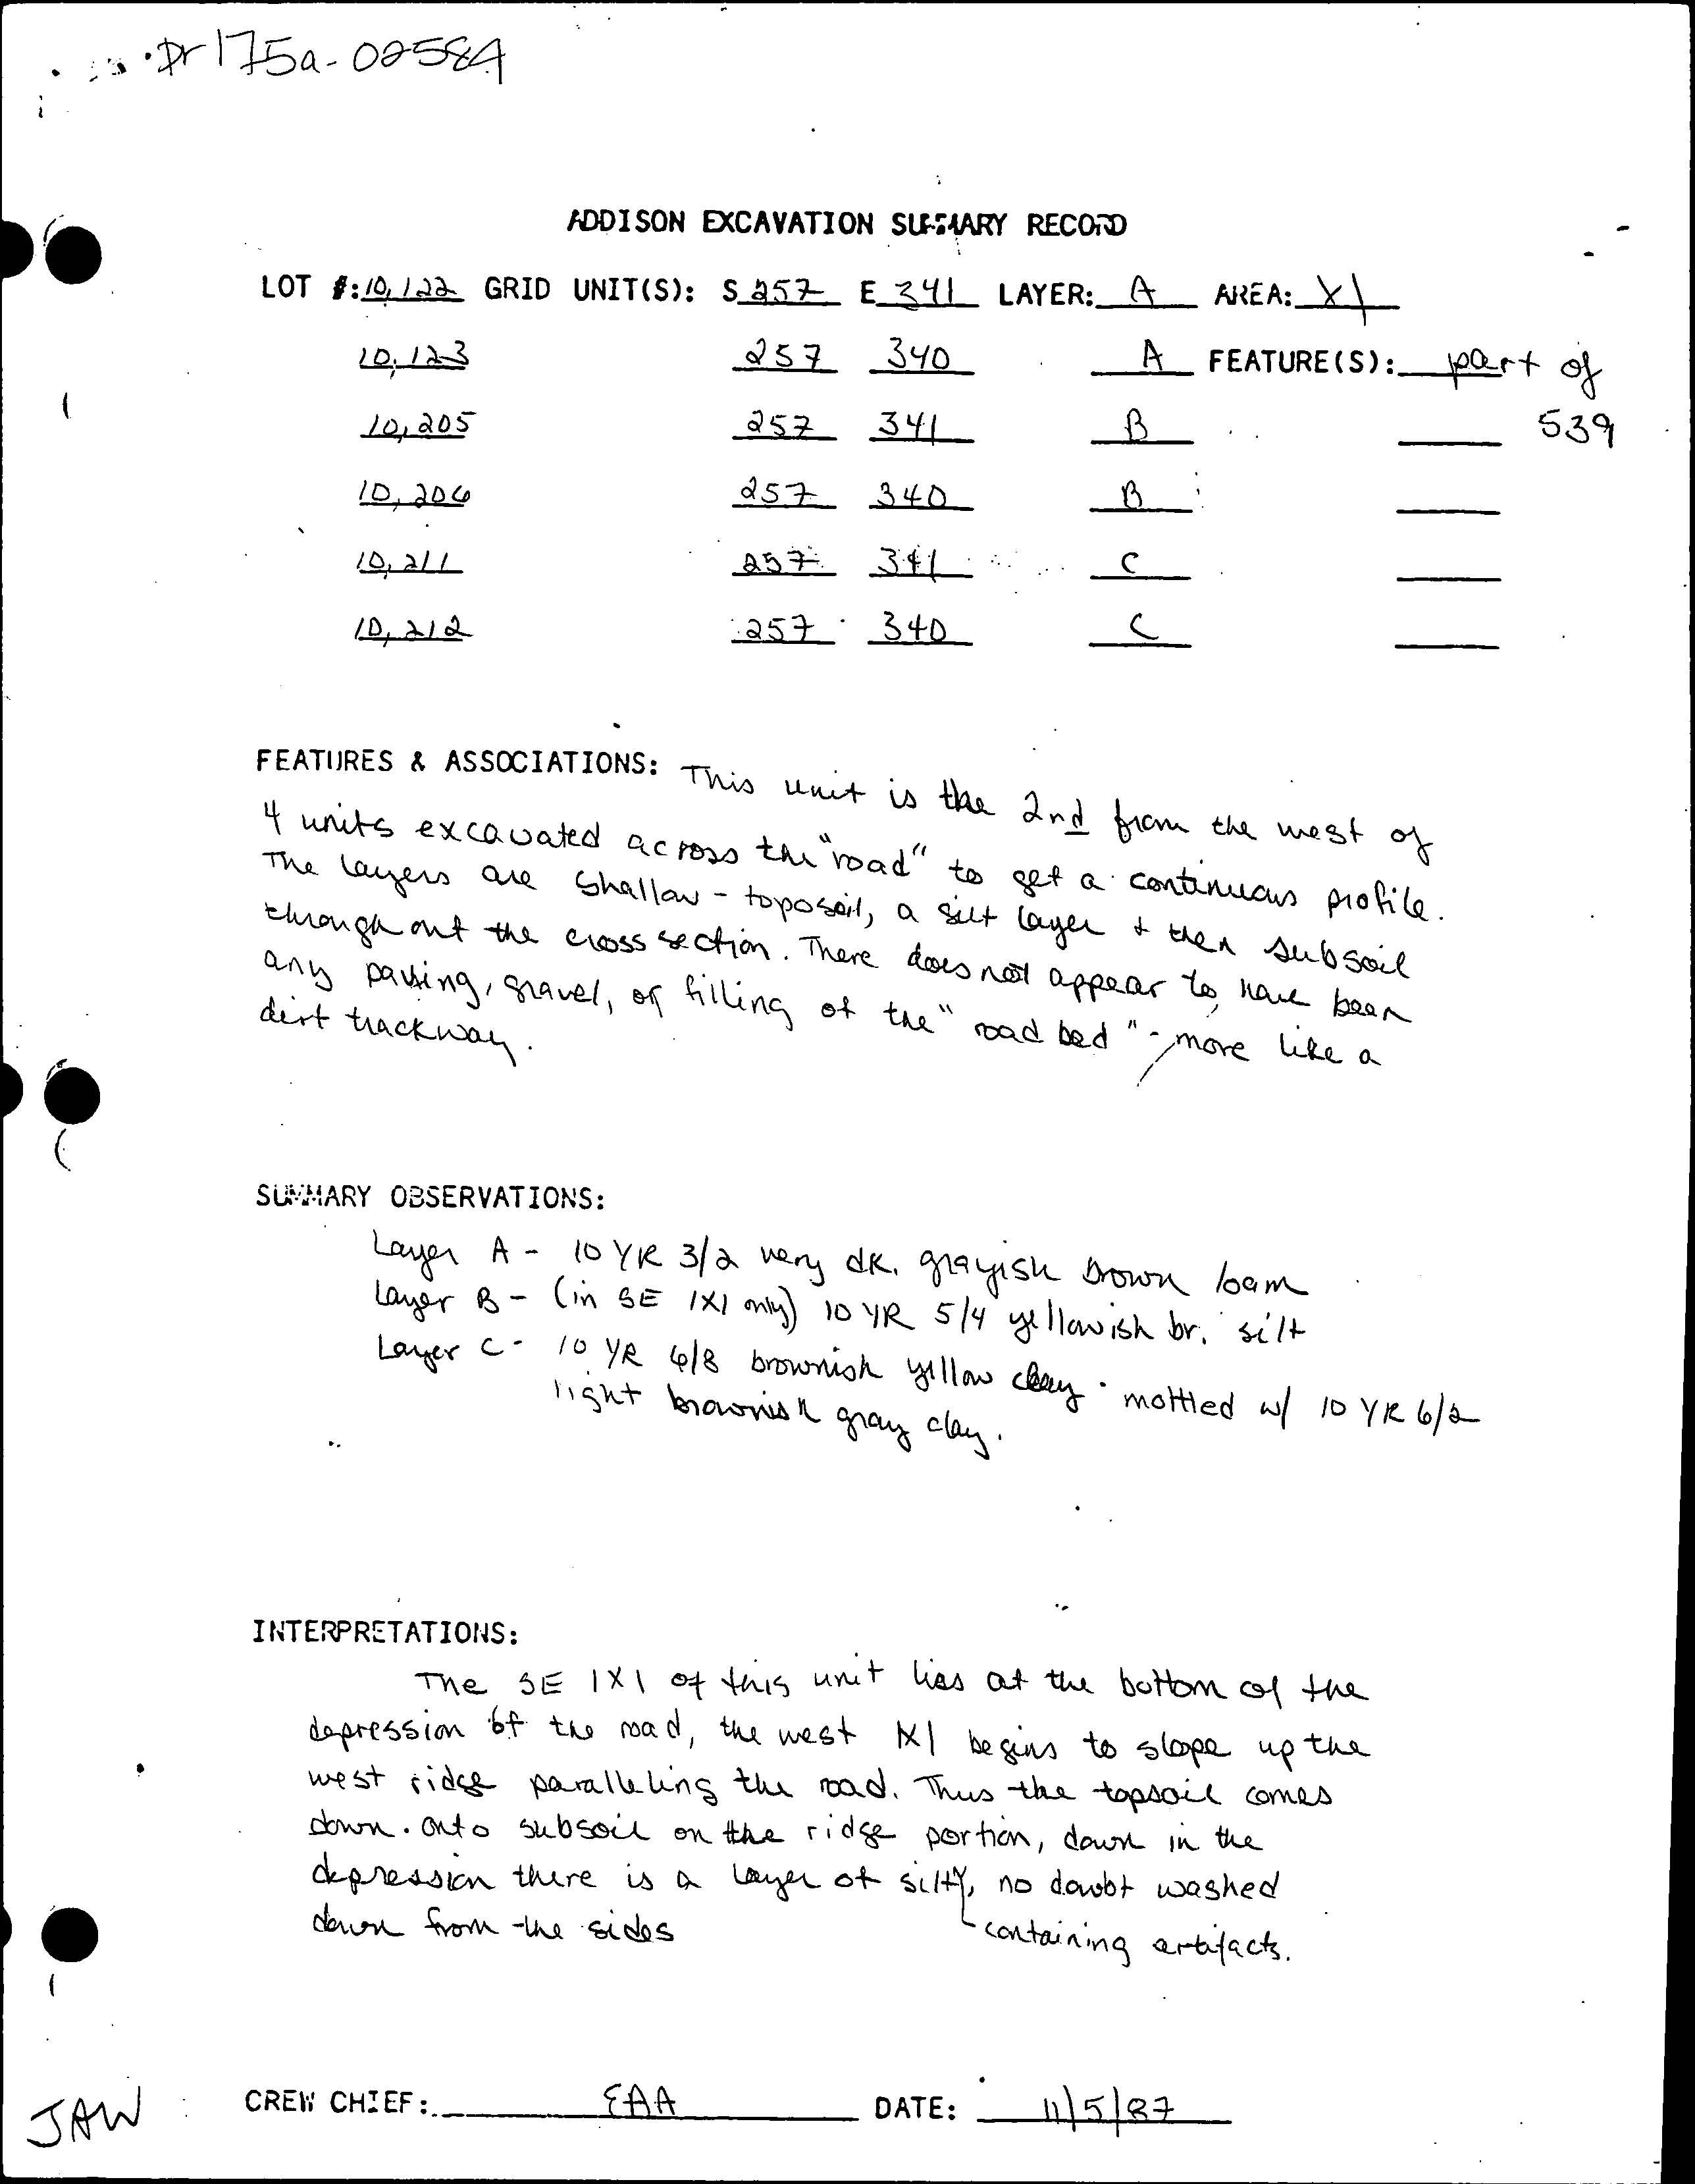 Dr 175a-02584
ADDISON EXCAVATION SUMMARY RECORD
LOT #: 10,122 GRID UNIT(S): S 257 E 341 LAYER: A AREA: XI
10,123 257 340 A FEATURE(S): part of
10,205 257 341 B 539
10,206 257 340 B
10,211 257 341 C
10,212 257 340 C
FEATURES & ASSOCIATIONS: This unit is the 2nd from the west of
4 units excavated across the "road" to get a continuous profile.
The layers are shallow - toposoil, a silt layer + then subsoil
throughout the cross section. There does not appear to have been
any paving, gravel, or filling of the "road bed" - more like a
dirt trackway.
SUMMARY OBSERVATIONS:
Layer A - 10 YR 3/2 very dk. grayish brown loam
Layer B - (in SE 1X1 only) 10 YR 5/4 yellowish br. silt
Layer C - 10 YR 6/8 brownish yellow clay. mottled w/ 10 YR 6/2
light brownish gray clay.
INTERPRETATIONS:
The SE 1X1 of this unit lies at the bottom of the
depression of the road, the west 1X1 begins to slope up the
west ridge paralleling the road. Thus the topsoil comes
down onto subsoil on the ridge portion, down in the
depression there is a layer of silty, no doubt washed
down from the sides containing artifacts.
JAW CREW CHIEF: EAA DATE: 11/5/87